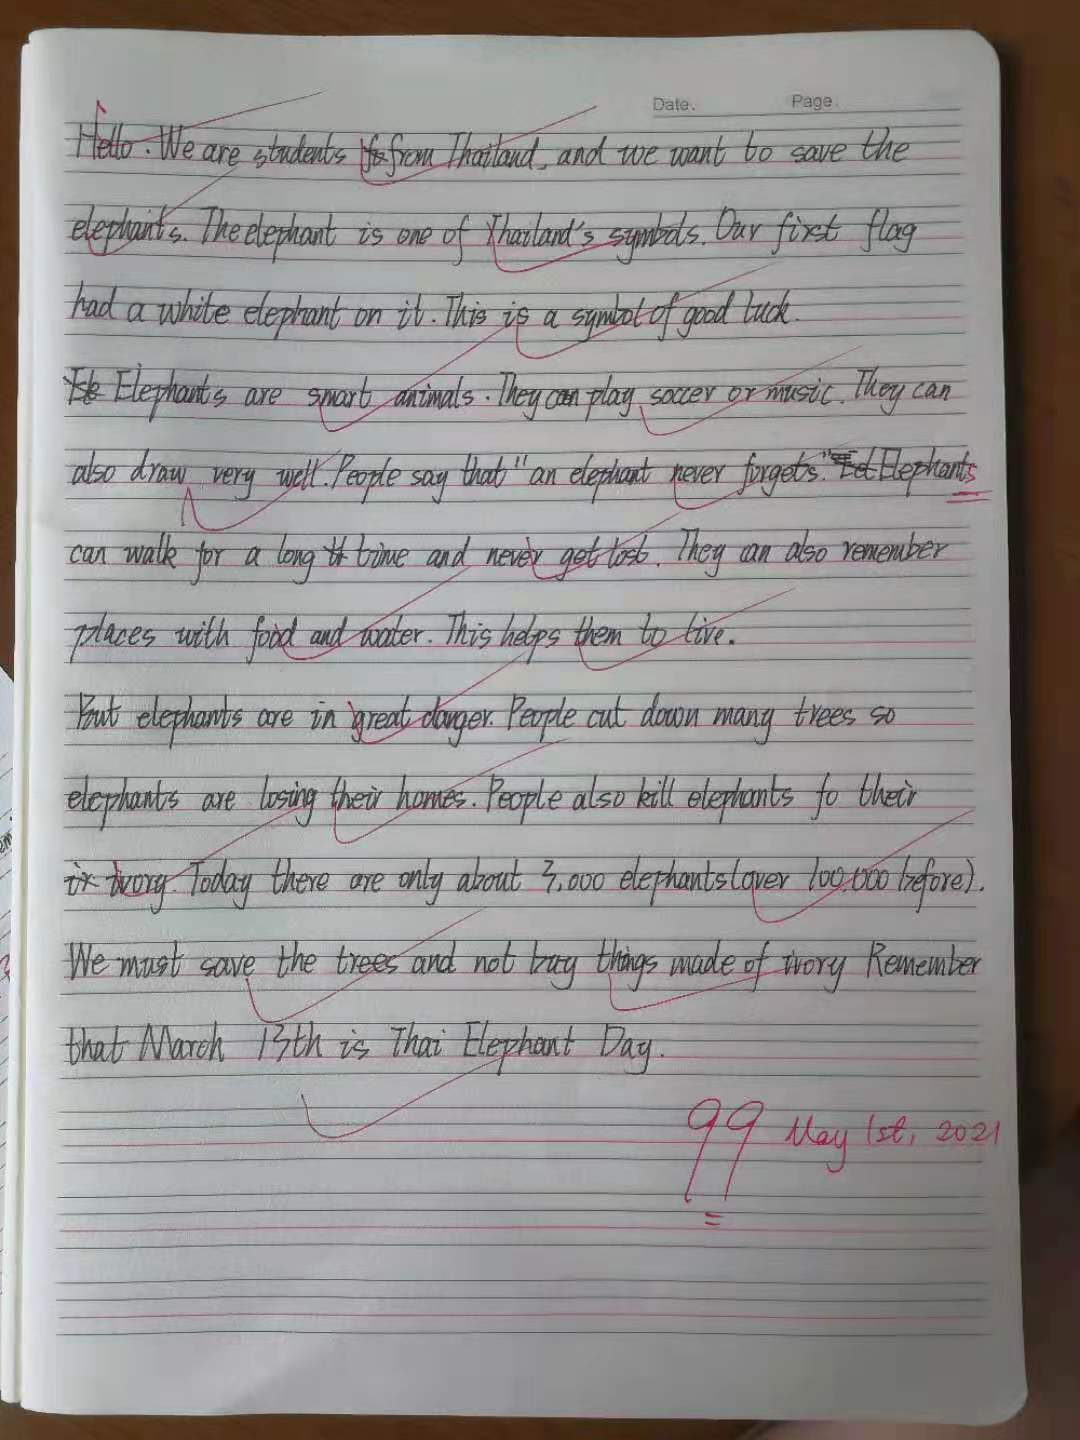 Date. Page.
Hello. We are students from Thailand, and we want to save the
elephants. The elephant is one of Thailand's symbols. Our first flag
had a white elephant on it. This is a symbol of good luck.
Elephants are smart animals. They can play soccer or music. They can
also draw very well. People say that "an elephant never forgets." Elephants
can walk for a long time and never get lost. They can also remember
places with food and water. This helps them to live.
But elephants are in great danger. People cut down many trees so
elephants are losing their homes. People also kill elephants fo their
ivory. Today there are only about 3,000 elephants (over 100,000 before).
We must save the trees and not buy things made of ivory Remember
that March 13th is Thai Elephant Day.
99 May 1st, 2021